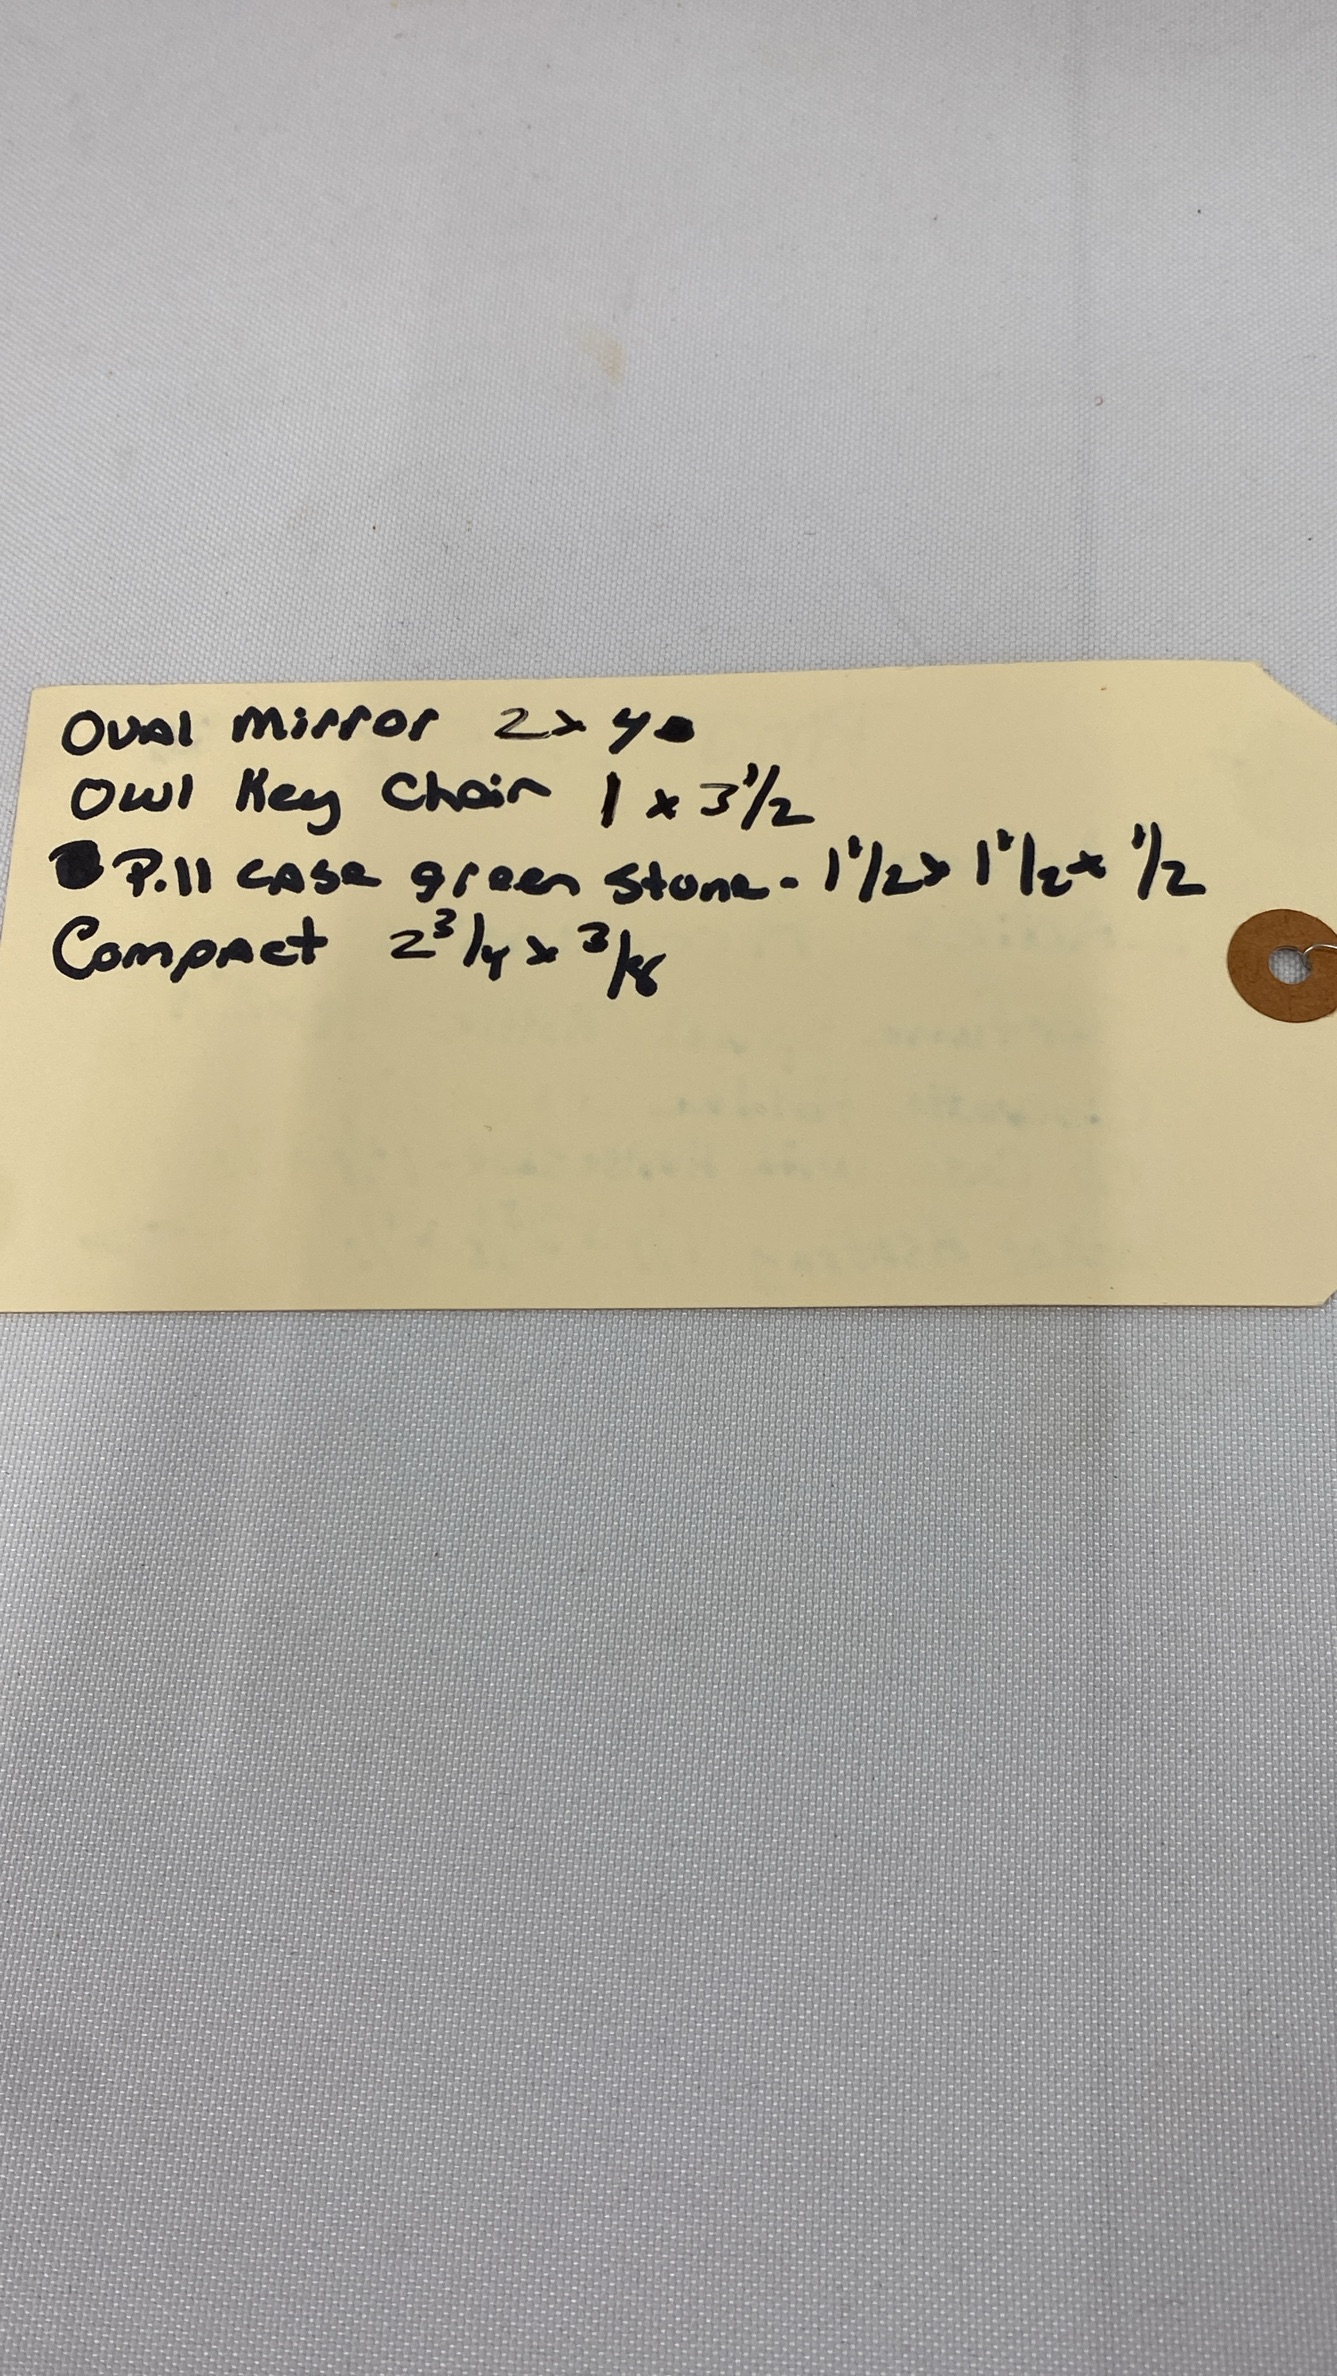 Oval Mirror 2x4
Owl Key Chain 1 x 3 1/2
Pill case green stone - 1 1/2 x 1 1/2 x 1/2
Compact 2 3/4 x 3/8